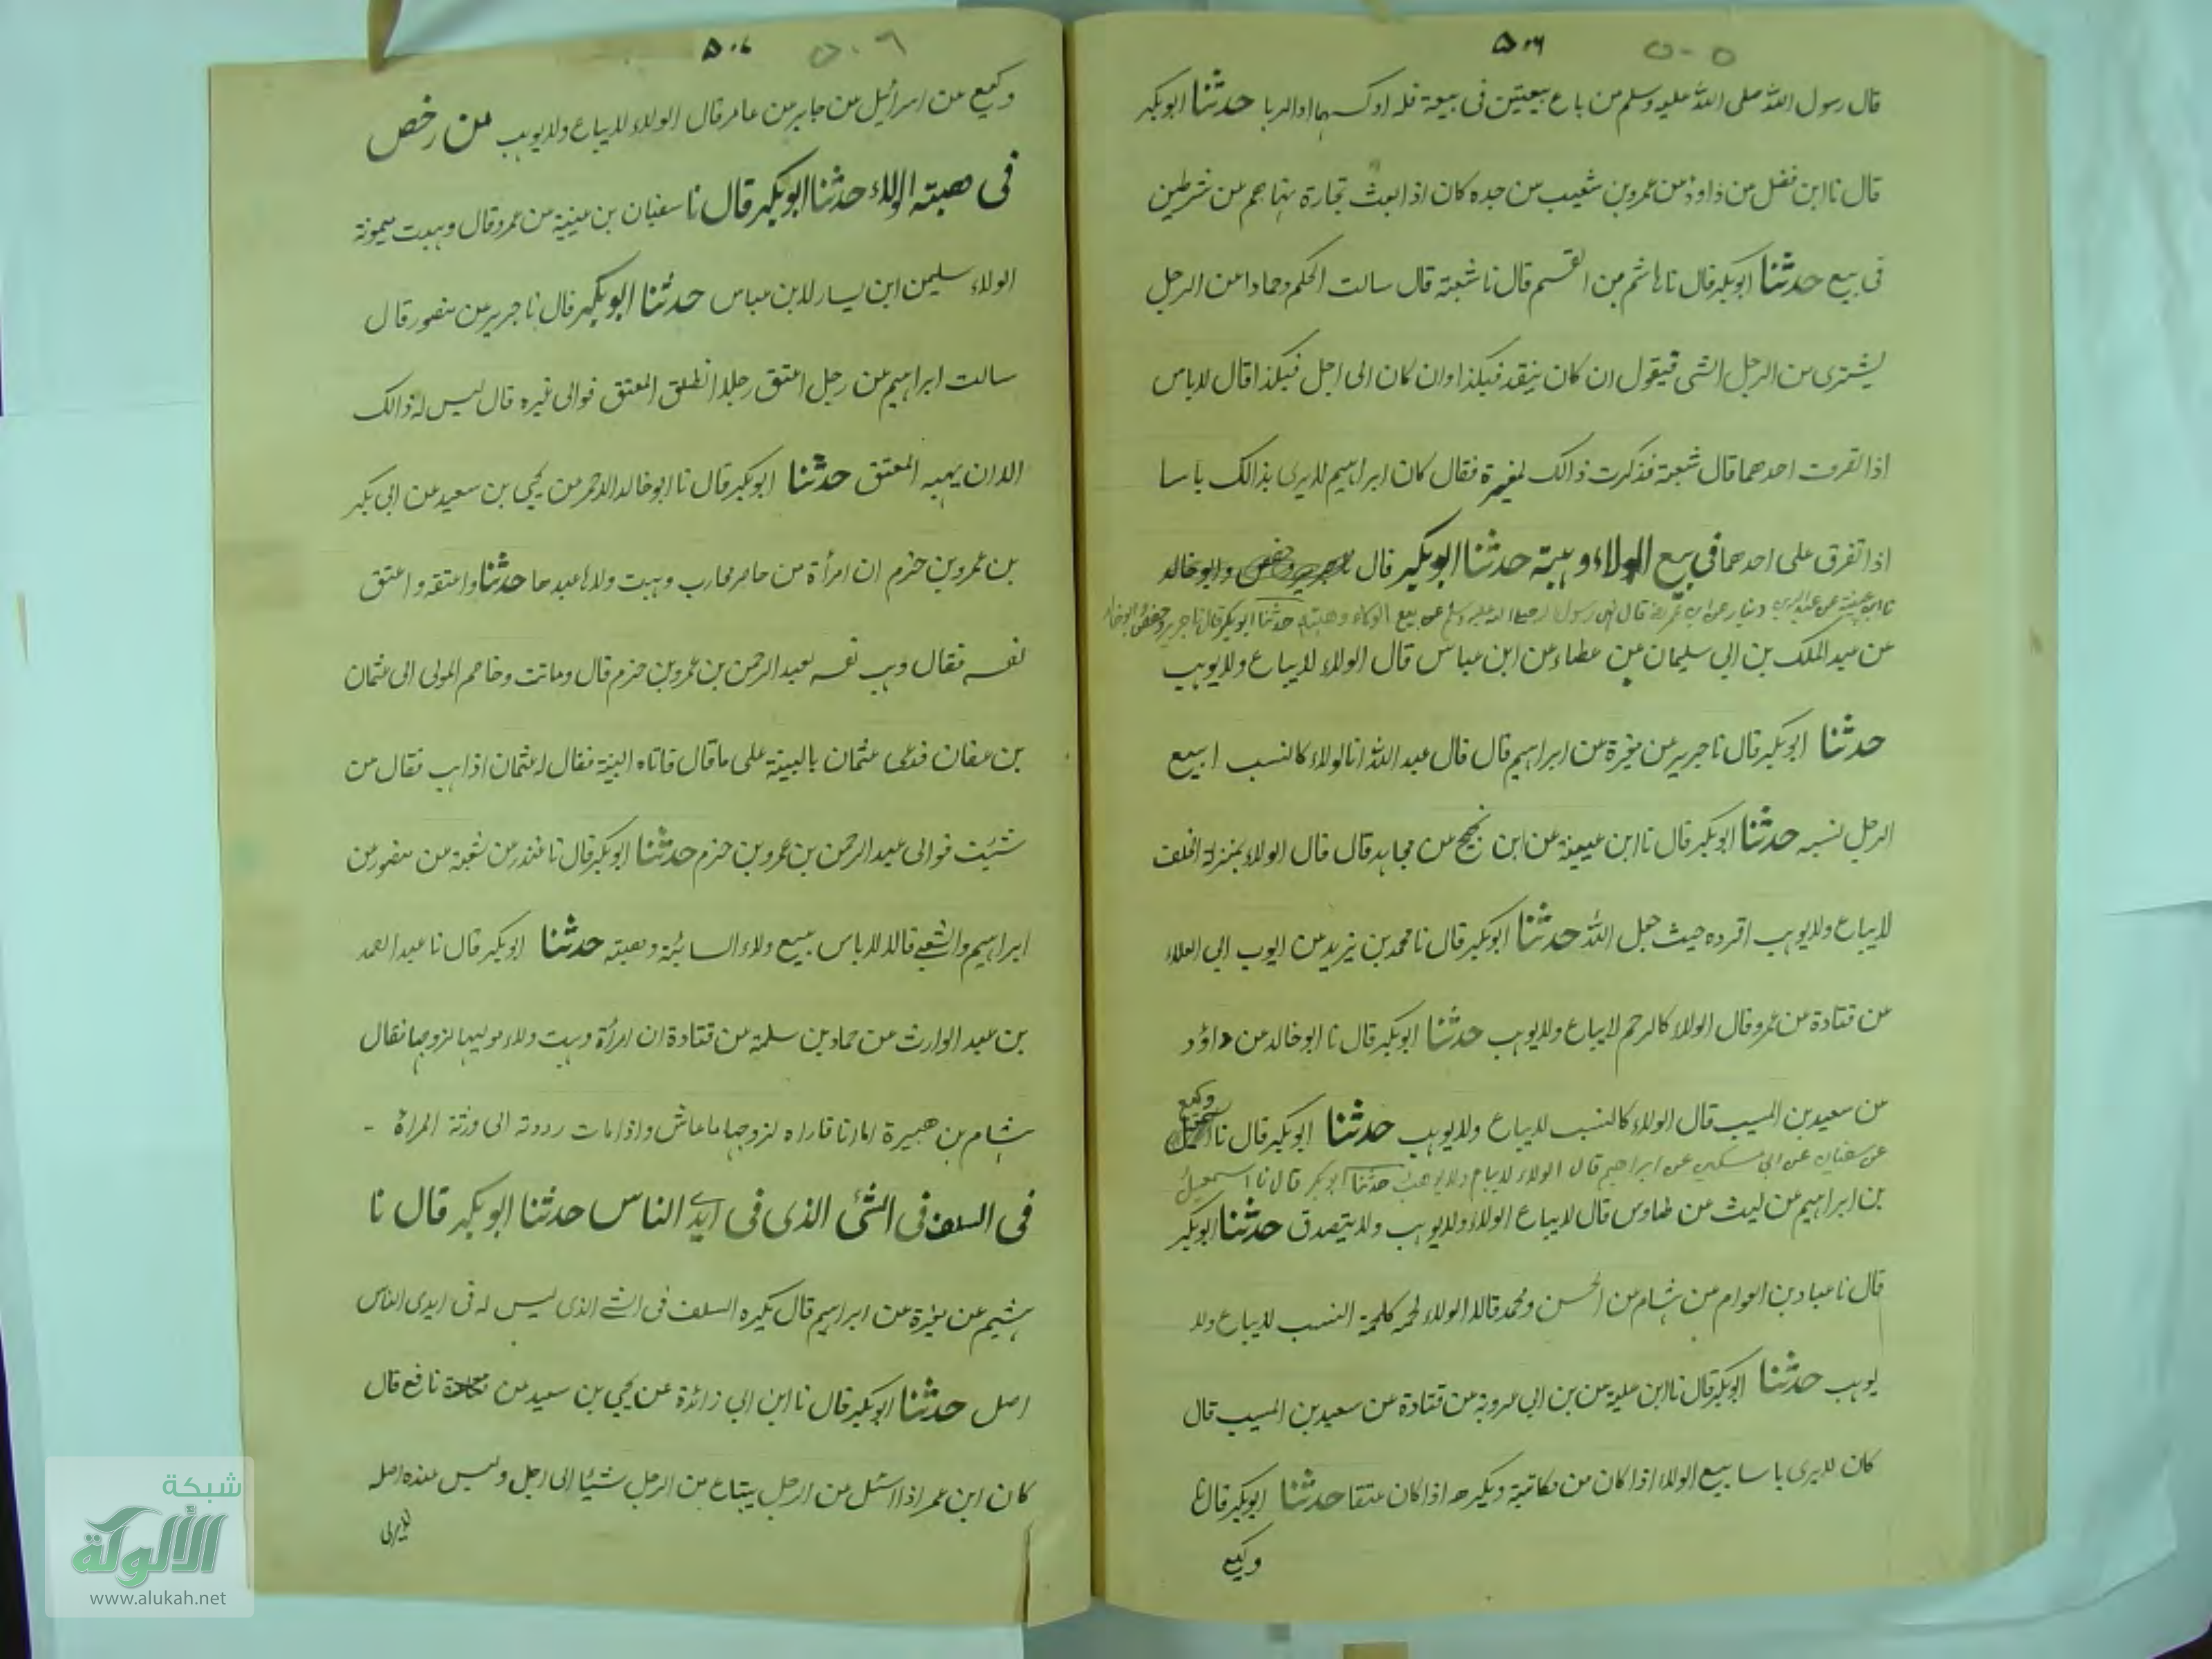 ٥٠٦ ٥٠٥
قال رسول الله صلى الله عليه وسلم من باع بيعتين فى بيعة فله اوكسهما او الربا حدثنا ابوبكر
قال نا ابن فضل من داود من عمرو بن شعيب من جده كان اذا بعث تجارة نهاهم من شرطين
فى بيع حدثنا ابوبكر قال نا هاشم بن القسم قال نا شعبة قال سالت الحكم وحمادا من الرجل
يشترى من الرجل الشى فيقول ان كان بنقد فبكذا وان كان الى اجل فبكذا قال لاباس
اذا تفرقت احدهما قال شعبة فذكرت ذالك لمغيرة فقال كان ابراهيم لايرى بذالك باسا
اذا تفرق على احدهما فى بيع الولاء وهبته حدثنا ابوبكر قال وابوخالد
نا ابن عيينة عن عبد الله بن دينار عن ابن عمر قال نهى رسول الله صلى الله عليه وسلم عن بيع الولاء وهبته حدثنا ابوبكر قال نا جرير وحفص وابوخالد
من عبد الملك بن ابى سليمان من عطاء من ابن عباس قال الولاء لايباع ولايوهب
حدثنا ابوبكر قال نا جرير من مغيرة من ابراهيم قال قال عبد الله انا لولاء كالنسب ابيع
الرجل نسبه حدثنا ابوبكر قال نا ابن عيينة من ابن نجيح من مجاهد قال قال الولاء بمنزلة الحلف
لايباع ولايوهب اقروه حيث جعل الله حدثنا ابوبكر قال نا محمد بن يزيد من ايوب ابى العلاء
من قتادة من عمر وقال الولاء كالرحم لايباع ولايوهب حدثنا ابوبكر قال نا ابوخالد من داؤد
من سعيد بن المسيب قال الولاء كالنسب لايباع ولايوهب حدثنا ابوبكر قال نا وكيع
عن سفيان عن ابى مسكين عن ابراهيم قال الولاء لايباع ولايوهب حدثنا ابوبكر قال نا اسمعيل
بن ابراهيم من ليث من طاوس قال لايباع الولاء ولايوهب ولايتصدق حدثنا ابوبكر
قال نا عباد بن العوام من هشام من الحسن ومحمد قالا الولاء لحمة كلحمة النسب لايباع ولا
يوهب حدثنا ابوبكر قال نا ابن علية من بن ابى عروبة من قتادة من سعيد بن المسيب قال
كان لايرى باسا بيع الولاء اذا كان من مكاتبة ويكره اذا كان عتقا حدثنا ابوبكر قال نا
وكيع
٥٠٧ ٥٠٦
وكيع من اسرائيل من جابر من عامر قال الولاء لايباع ولايوهب من رخص
فى هبته الولاء حدثنا ابوبكر قال نا سفيان بن عيينة من عمرو قال وهبت ميمونة
الولاء سليمن ابن يسار لابن عباس حدثنا ابوبكر قال نا جرير من منصور قال
سالت ابراهيم من رجل اعتق رجلا انطلق المعتق فوالى غيره قال ليس له ذالك
الا ان يهبه المعتق حدثنا ابوبكر قال نا ابوخالد الاحمر من يحيى بن سعيد من ابى بكر
بن عمرو بن حزم ان امرأة من محارب وهبت ولاء عبدها حدثنا واعتقه واعتق
نفسه فقال وهب نفسه لعبد الرحمن بن عمرو بن حزم قال وماتت وخاصم المولى الى عثمان
بن عفان فدعى عثمان بالبينة على ما قال فاتاه البينة فقال له عثمان اذهب فقال من
شئت فوالى عبد الرحمن بن عمرو بن حزم حدثنا ابوبكر قال نا غندر من شعبة من منصور من
ابراهيم والشعبى قالا لاباس ببيع ولاء السائبة وهبته حدثنا ابوبكر قال نا عبد الصمد
بن عبد الوارث من حماد بن سلمة من قتادة ان امرأة وهبت ولاء مواليها لزوجها فقال
هشام بن هبيرة اما انا فاراه لزوجها ما عاش واذا مات رددته الى ورثة المرأة -
فى السلف فى الشئ الذى فى ايدى الناس حدثنا ابوبكر قال نا
هشيم من مغيرة من ابراهيم قال يكره السلف فى الشئ الذى ليس له فى ايدى الناس
اصل حدثنا ابوبكر قال نا ابن ابى زائدة عن يحيى بن سعيد من نافع قال
كان ابن عمر اذا سئل من الرجل يبتاع من الرجل شيئا الى اجل وليس عنده اصله
لايرى
شبكة
الألوكة
www.alukah.net